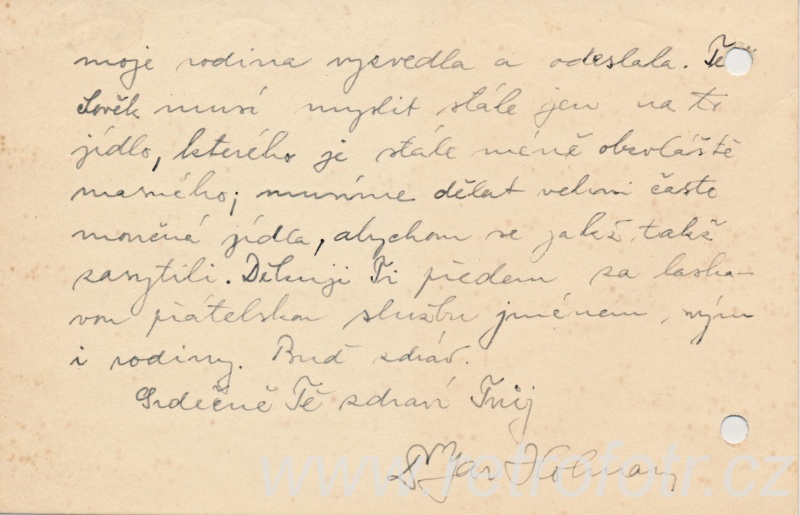 moje rodina vyzvedla a odeslala. Te
člověk musí myslit stále jen na to
jídlo, kterého je stále méně obzvláště
masného; musíme dělat velmi často
moučná jídla, abychom se jakž takž
zasytili. Děkuji Ti předem za laska-
vou přátelskou službu jménem svým
i rodiny. Buď zdráv.
Srdečně Tě zdraví Tvůj
Dr Jar. Holman
www.retrofotr.cz